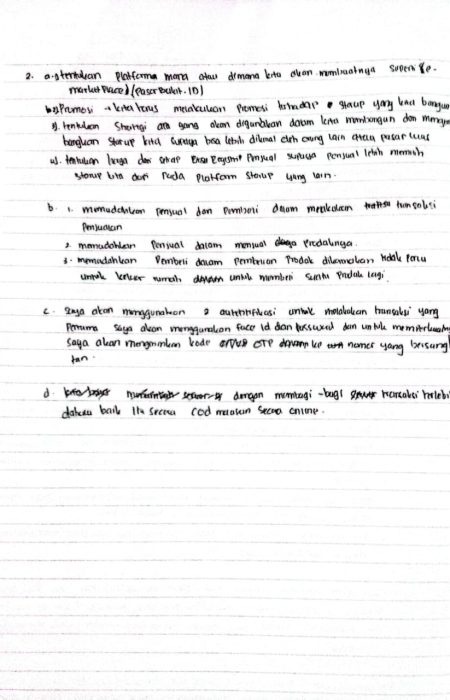 2. a. 1) tentukan Platforma mana atau dimana kita akan membuatnya seperti Be-
market Place) (Pasar Bukit. ID)
2) Promosi → kita harus melakukan Promosi terhadap starup yang kita bangun
3). tentukan Strategi apa yang akan digunakan dalam kita membangun dan
bangkan starup kita supaya bisa lebih dikenal oleh orang lain atau pasar luas
4). tentukan harga dan setiap Penjual supaya Penjual lebih memilih
Starup kita dari Pada Platform Starup yang lain.
b. 1. memudahkan Penjual dan Pembeli dalam melakukan transaksi
Penjualan
2. memudahkan Penjual dalam menjual Prodaknya.
3. memudahkan Pembeli dalam Pembelian Prodak dikarenakan tidak Perlu
untuk keluar rumah untuk membeli suatu Produk lagi.
c. Saya akan menggunakan 2 autentifikasi untuk melakukan transaksi yang
Pertama saya akan menggunakan Face Id dan Password dan untuk
Saya akan mengirimkan kode OTP ke nomer yang bersang
tan.
d. dengan membagi-bagi transaksi terlebi
dahulu baik itu secara cod maupun secara online.